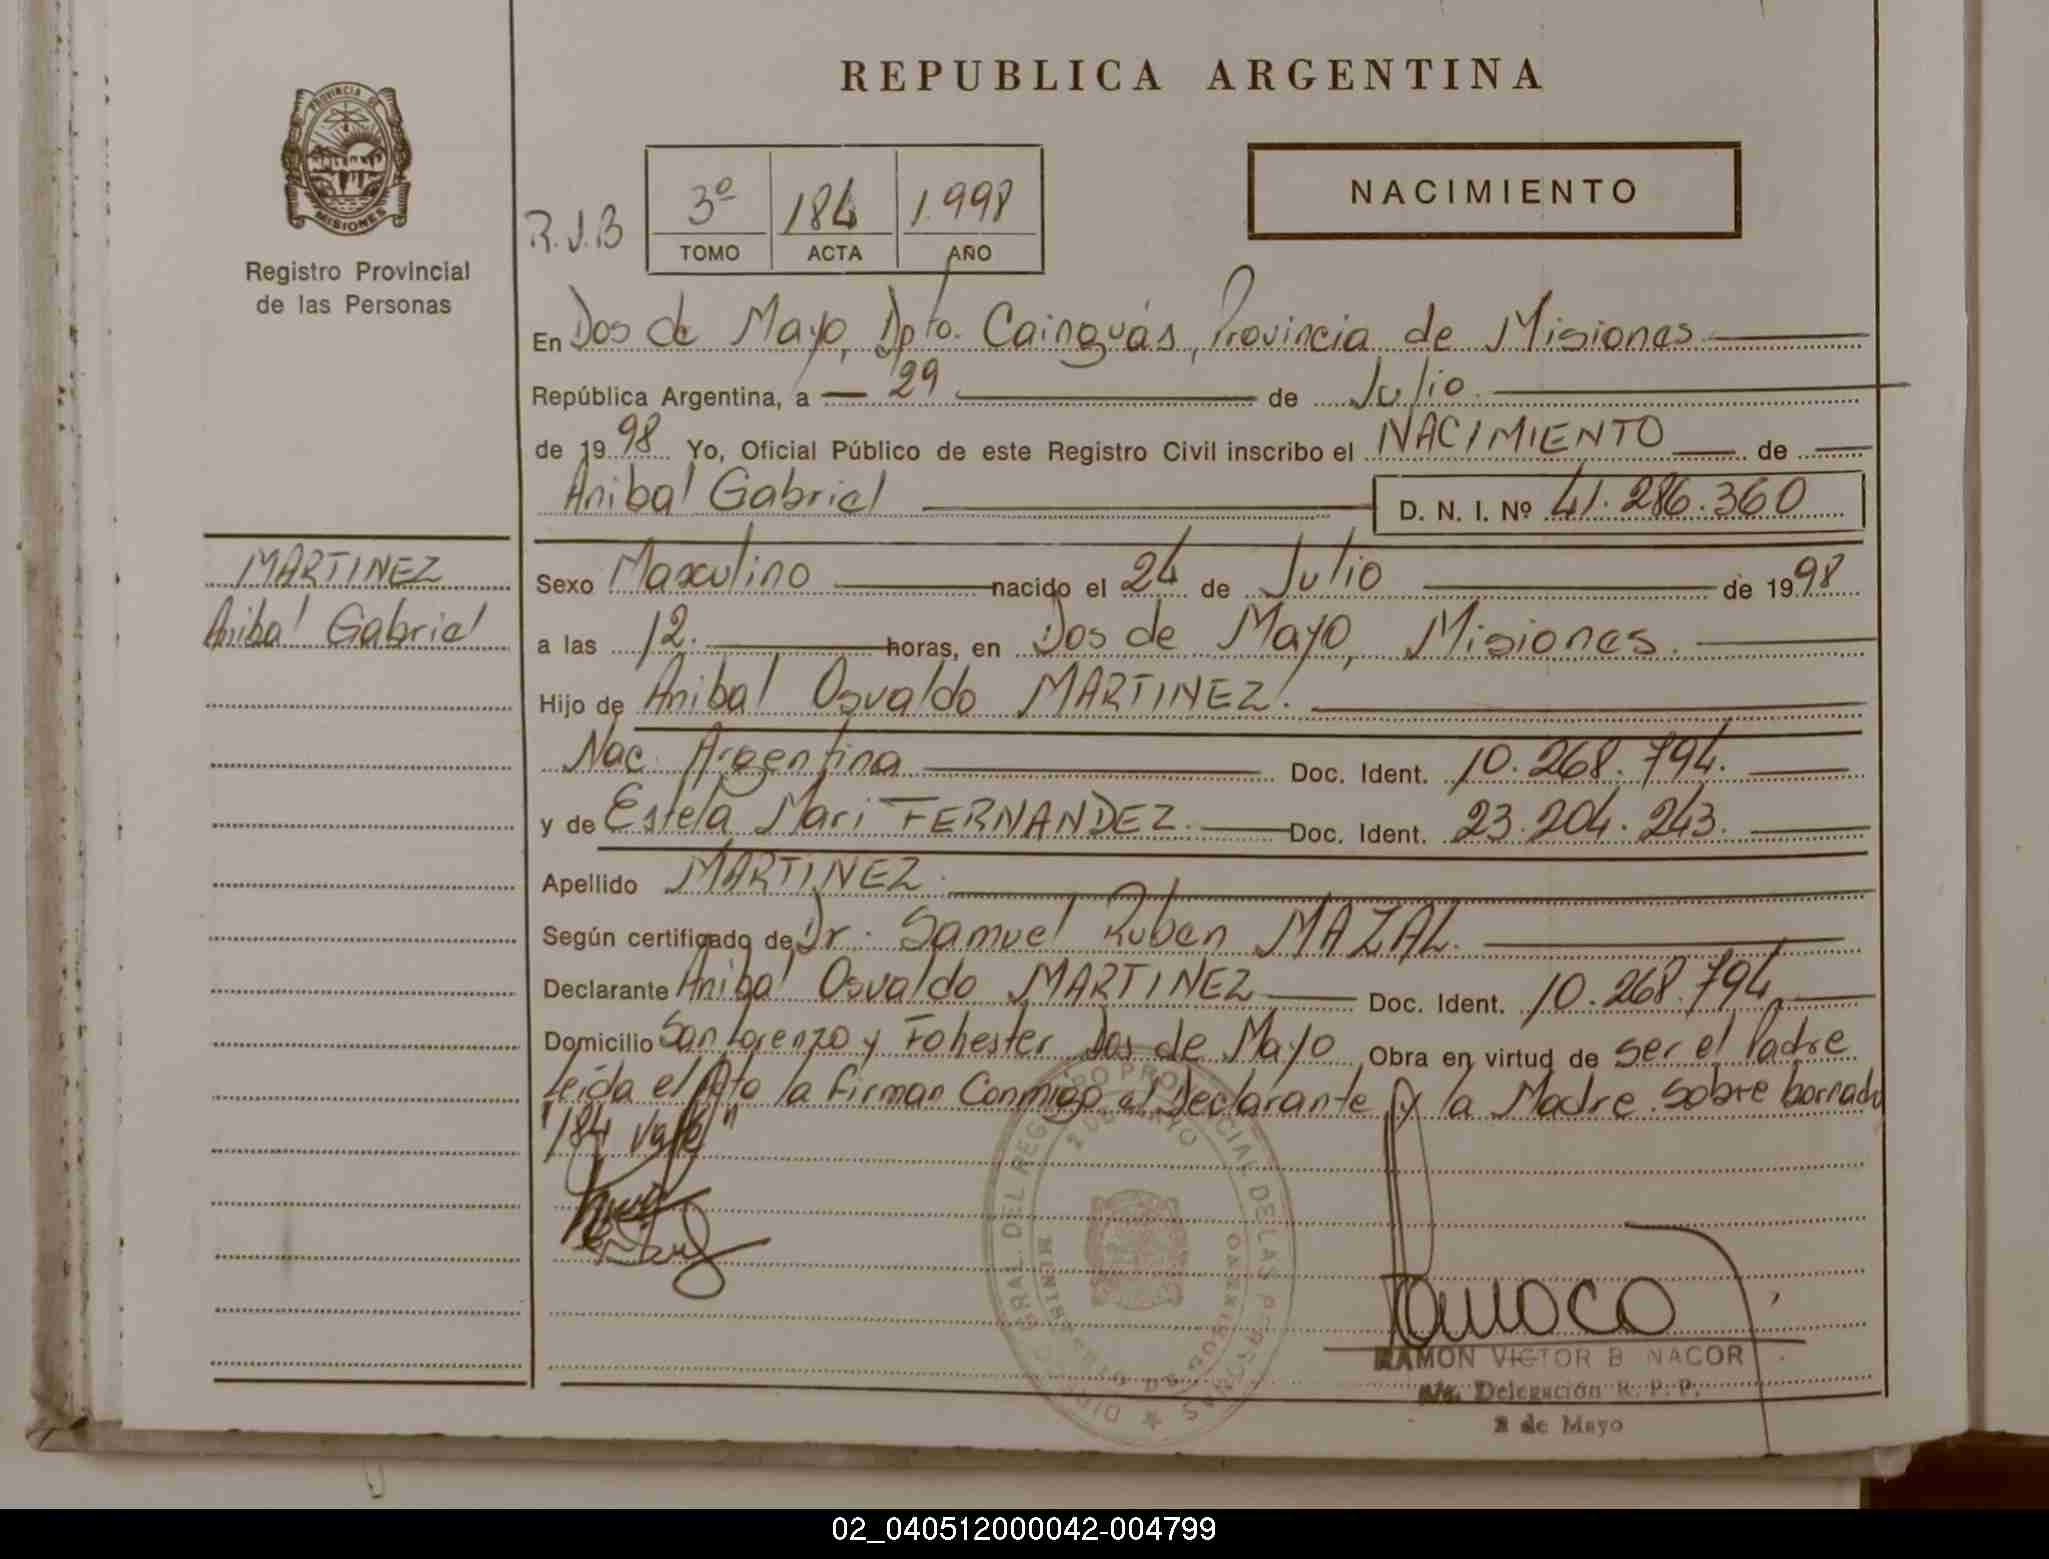 REPUBLICA ARGENTINA
PROVINCIA DE
MISIONES
Registro Provincial
de las Personas
R.J.B
3º 184 1.998
TOMO ACTA AÑO
NACIMIENTO
En Dos de Mayo, Dpto. Cainguás, Provincia de Misiones
República Argentina, a 29 de Julio
de 1998 Yo, Oficial Público de este Registro Civil inscribo el NACIMIENTO de
Anibal Gabriel D. N. I. Nº 41.286.360
MARTINEZ
Anibal Gabriel
Sexo Masculino nacido el 24 de Julio de 1998
a las 12. horas, en Dos de Mayo, Misiones.
Hijo de Anibal Osvaldo MARTINEZ.
Nac. Argentina Doc. Ident. 10.268.794.
y de Estela Mari FERNANDEZ. Doc. Ident. 23.204.243.
Apellido MARTINEZ.
Según certificado de Dr. Samuel Ruben MAZAL.
Declarante Anibal Osvaldo MARTINEZ Doc. Ident. 10.268.794
Domicilio San Lorenzo y Fohester Dos de Mayo Obra en virtud de ser el Padre
Leida el Acta la firman Conmigo el Declarante y la Madre. Sobre borrado
"184 vale"
RAMON VICTOR B NACOR
Delegación R. P. P.
2 de Mayo
02_040512000042-004799